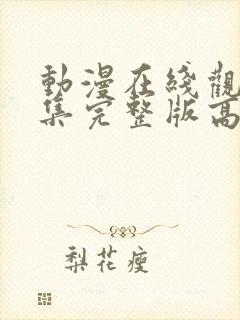 動漫在綫觀
集完整版高
梨花瘦